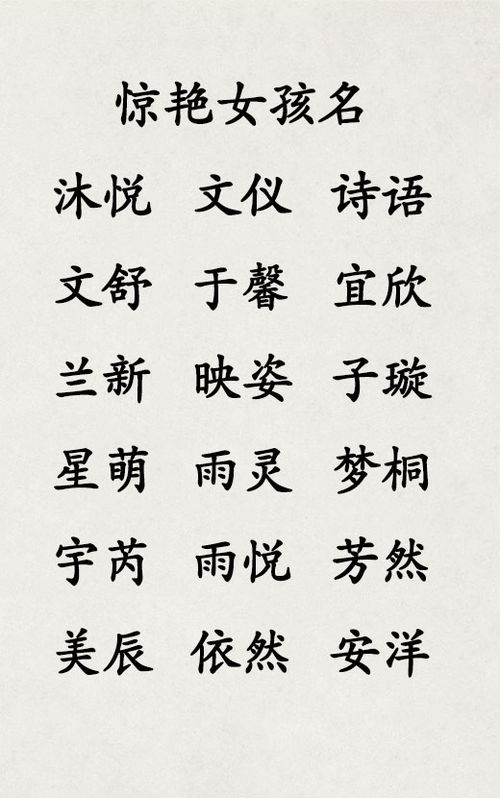 惊艳女孩名
沐悦 文仪 诗语
文舒 于馨 宜欣
兰新 映姿 子璇
星萌 雨灵 梦桐
宇芮 雨悦 芳然
美辰 依然 安洋